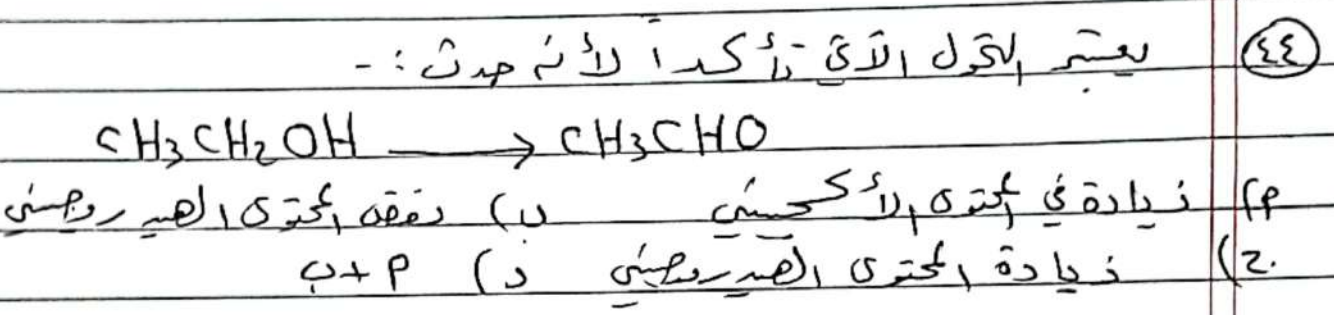 ٤٤ يعتبر التحول الآتي تأكسداً لأنه حدث :-
CH3CH2OH → CH3CHO
أ) زيادة في المحتوى الأكسجيني ب) نقص المحتوى الهيدروجيني
ج) زيادة المحتوى الهيدروجيني د) أ + ب